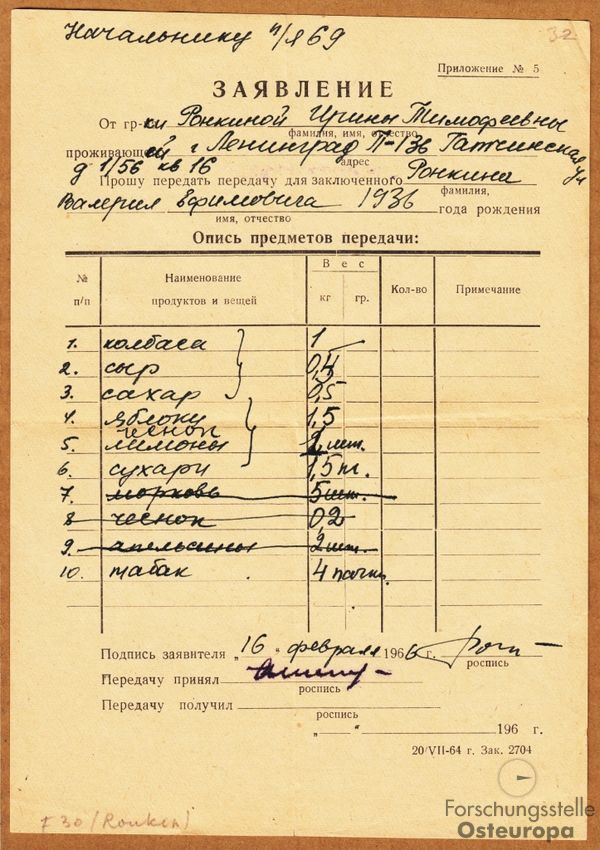 Начальнику п/я 69
32
Приложение № 5
ЗАЯВЛЕНИЕ
От гр-ки Ронкиной Ирины Тимофеевны
фамилия, имя, отчество
проживающей г Ленинград П-136 Гатчинская ул
адрес
д 1/56 кв 16
Прошу передать передачу для заключенного Ронкина
фамилия,
Валерия Ефимовича 1936 года рождения
имя, отчество
Опись предметов передачи:
№ п/п Наименование продуктов и вещей Вес кг гр. Кол-во Примечание
1. колбаса 1
2. сыр 0,4
3. сахар 0,5
4. яблоки 1,5
чеснок
5. лимоны 2 шт.
6. сухари 1,5 кг.
7. морковь 5 шт.
8 чеснок 0,2
9. апельсины 2 шт.
10. табак 4 пачки
Подпись заявителя „16" февраля 1966 г.
роспись
Передачу принял
роспись
Передачу получил
роспись
„ " 196 г.
20/VII-64 г. Зак. 2704
F 30 (Ronkin)
Forschungsstelle
Osteuropa